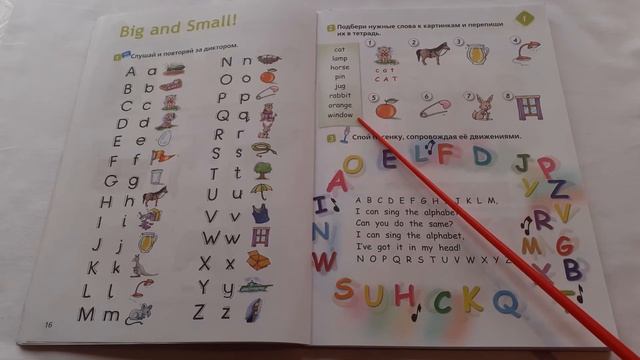 Big and Small!
1 Слушай и повторяй за диктором.
A a
B b
C c
D d
E e
F f
G g
H h
I i
J j
K k
L l
M m
N n
O o
P p
Q q
R r
S s
T t
U u
V v
W w
X x
Y y
Z z
16
1
2 Подбери нужные слова к картинкам и перепиши
их в тетрадь.
cat
lamp
horse
pin
jug
rabbit
orange
window
1 2 3 4
cat
CAT
5 6 7 8
3 Спой песенку, сопровождая её движениями.
A B C D E F G H I J K L M,
I can sing the alphabet.
Can you do the same?
I can sing the alphabet,
I've got it in my head!
N O P Q R S T U V W X Y Z
A O E L F D J P
Y Z
I R V
N M G
W X B
S U H C K Q T